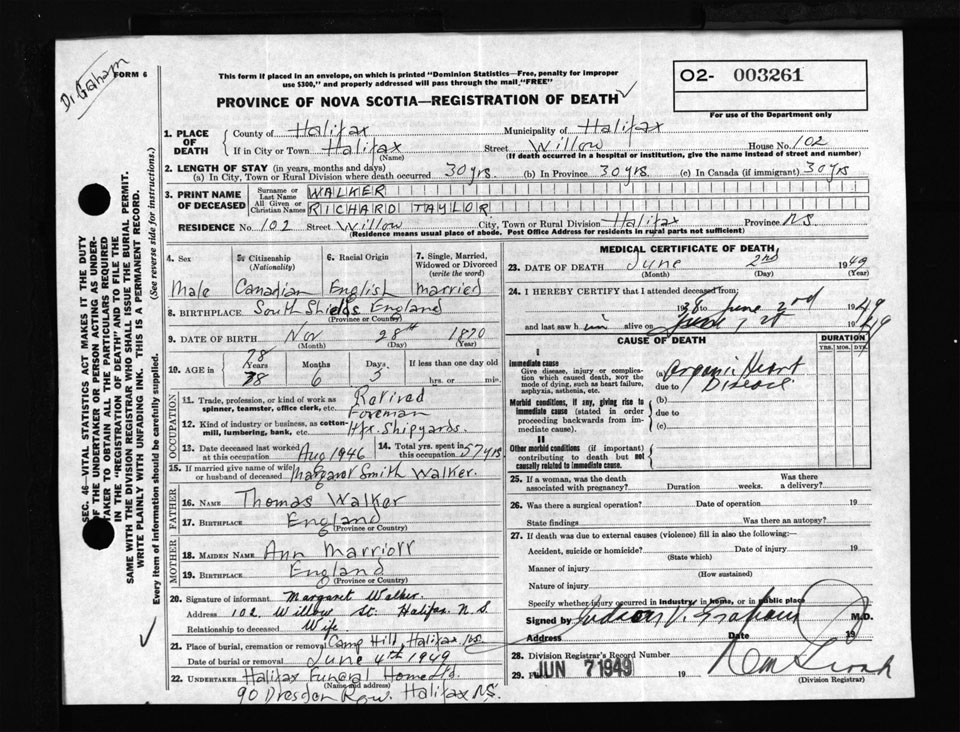 Dr Graham
FORM 6
This form if placed in an envelope, on which is printed "Dominion Statistics—Free, penalty for improper
use $300," and properly addressed will pass through the mail "FREE"
O2- 003261
For use of the Department only
PROVINCE OF NOVA SCOTIA—REGISTRATION OF DEATH
1. PLACE OF DEATH
County of Halifax Municipality of Halifax
If in City or Town Halifax Street Willow House No. 102
(Name) (If death occurred in a hospital or institution, give the name instead of street and number)
2. LENGTH OF STAY (in years, months and days)
(a) In City, Town or Rural Division where death occurred 30 yrs. (b) In Province 30 yrs. (c) In Canada (if immigrant) 30 yrs
3. PRINT NAME OF DECEASED
Surname or Last Name WALKER
All Given or Christian Names RICHARD TAYLOR
RESIDENCE No. 102 Street Willow City, Town or Rural Division Halifax Province N.S.
(Residence means usual place of abode. Post Office Address for residents in rural parts not sufficient)
4. Sex 5. Citizenship (Nationality) 6. Racial Origin 7. Single, Married, Widowed or Divorced (write the word)
Male Canadian English Married
8. BIRTHPLACE South Shields England
(Province or Country)
9. DATE OF BIRTH Nov 28th 1870
(Month) (Day) (Year)
10. AGE in Years Months Days If less than one day old
78
78 6 3 hrs. or min.
OCCUPATION
11. Trade, profession, or kind of work as spinner, teamster, office clerk, etc. Retired Foreman
12. Kind of industry or business, as cotton-mill, lumbering, bank, etc. Hfx. Shipyards.
13. Date deceased last worked at this occupation Aug 1946 14. Total yrs. spent in this occupation 57 yrs
15. If married give name of wife or husband of deceased Margaret Smith Walker.
FATHER
16. NAME Thomas Walker
17. BIRTHPLACE England
(Province or Country)
MOTHER
18. MAIDEN NAME Ann Marriott
19. BIRTHPLACE England
(Province or Country)
20. Signature of informant Margaret Walker.
Address 102 Willow St. Halifax. N.S
Relationship to deceased Wife.
21. Place of burial, cremation or removal Camp Hill, Halifax N.S
Date of burial or removal June 4th 1949
22. UNDERTAKER Halifax Funeral Home Ltd.
(Name and address)
90 Dresden Row. Halifax N.S.
MEDICAL CERTIFICATE OF DEATH
23. DATE OF DEATH June 2nd 1949
(Month) (Day) (Year)
24. I HEREBY CERTIFY that I attended deceased from:
June 2nd 1949
and last saw him alive on June 1st 1949
CAUSE OF DEATH DURATION
YRS. MOS. DYS.
I
Immediate cause
Give disease, injury or complication which caused death, not the mode of dying, such as heart failure, asphyxia, asthenia, etc.
(a) Organic Heart
due to Disease
Morbid conditions, if any, giving rise to immediate cause (stated in order proceeding backwards from immediate cause).
(b)
due to
(c)
II
Other morbid conditions (if important) contributing to death but not causally related to immediate cause.
25. If a woman, was the death associated with pregnancy? Duration weeks. Was there a delivery?
26. Was there a surgical operation? Date of operation 19
State findings Was there an autopsy?
27. If death was due to external causes (violence) fill in also the following:—
Accident, suicide or homicide? Date of injury 19
(State which)
Manner of injury
(How sustained)
Nature of injury
Specify whether injury occurred in industry, in home, or in public place
Signed by Judson V. Graham M.D.
Address Date 19
28. Division Registrar's Record Number
29. JUN 7 1949 19
(Division Registrar)
SEC. 46—VITAL STATISTICS ACT MAKES IT THE DUTY
OF THE UNDERTAKER OR PERSON ACTING AS UNDER-
TAKER TO OBTAIN ALL THE PARTICULARS REQUIRED
IN THE "REGISTRATION OF DEATH" AND TO FILE THE
SAME WITH THE DIVISION REGISTRAR WHO SHALL ISSUE THE BURIAL PERMIT.
WRITE PLAINLY WITH UNFADING INK. THIS IS A PERMANENT RECORD.
Every item of information should be carefully supplied. (See reverse side for instructions.)